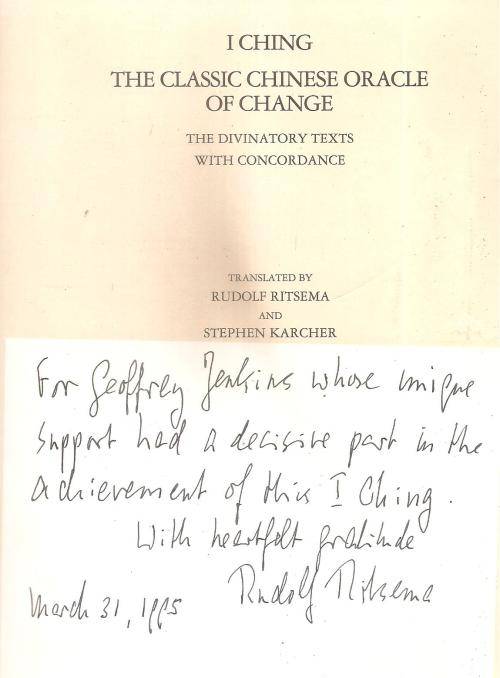 I CHING
THE CLASSIC CHINESE ORACLE
OF CHANGE
THE DIVINATORY TEXTS
WITH CONCORDANCE
TRANSLATED BY
RUDOLF RITSEMA
AND
STEPHEN KARCHER
For Geoffrey Jenkins whose unique
support had a decisive part in the
achievement of this I Ching.
With heartfelt gratitude
Rudolf Ritsema
March 31, 1995